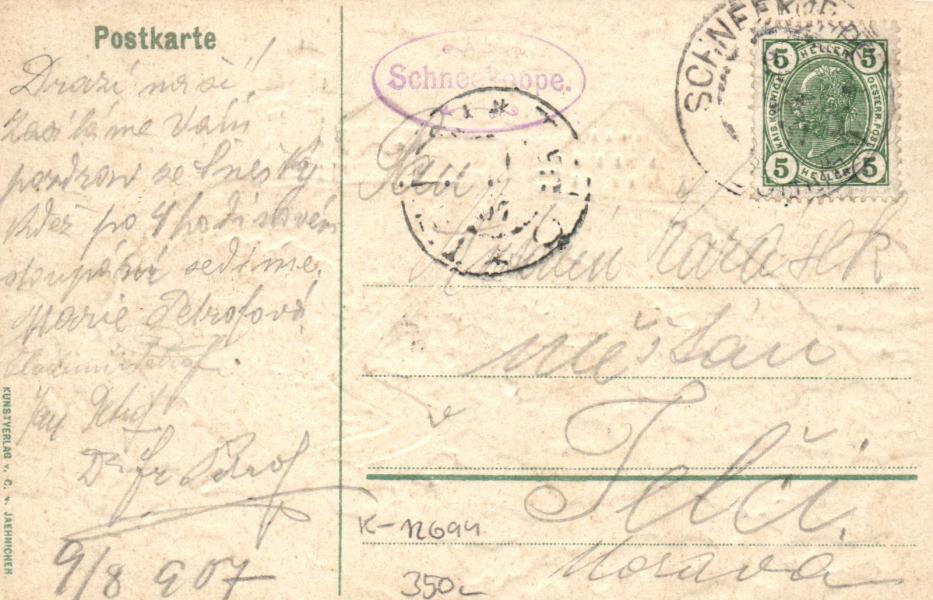 Postkarte
Drazí naší!
Zasíláme Vám
pozdrav se Sněžky
kdež po 4 hodinovém
stoupání sedíme.
Marie Petrofová
Vladimír Petrof
Jan Petrof
Dr Fr Petrof
9/8 907
KUNSTVERLAG v. C. v. JAEHNICHEN
Schneekoppe.
SCHNEEKOPPE
5 HELLER 5
KAIS. KOENIGL. OESTERR. POST.
5 HELLER 5
Pan
Karásek
měšťan
v
Telči
Morava
K-12694
350,-